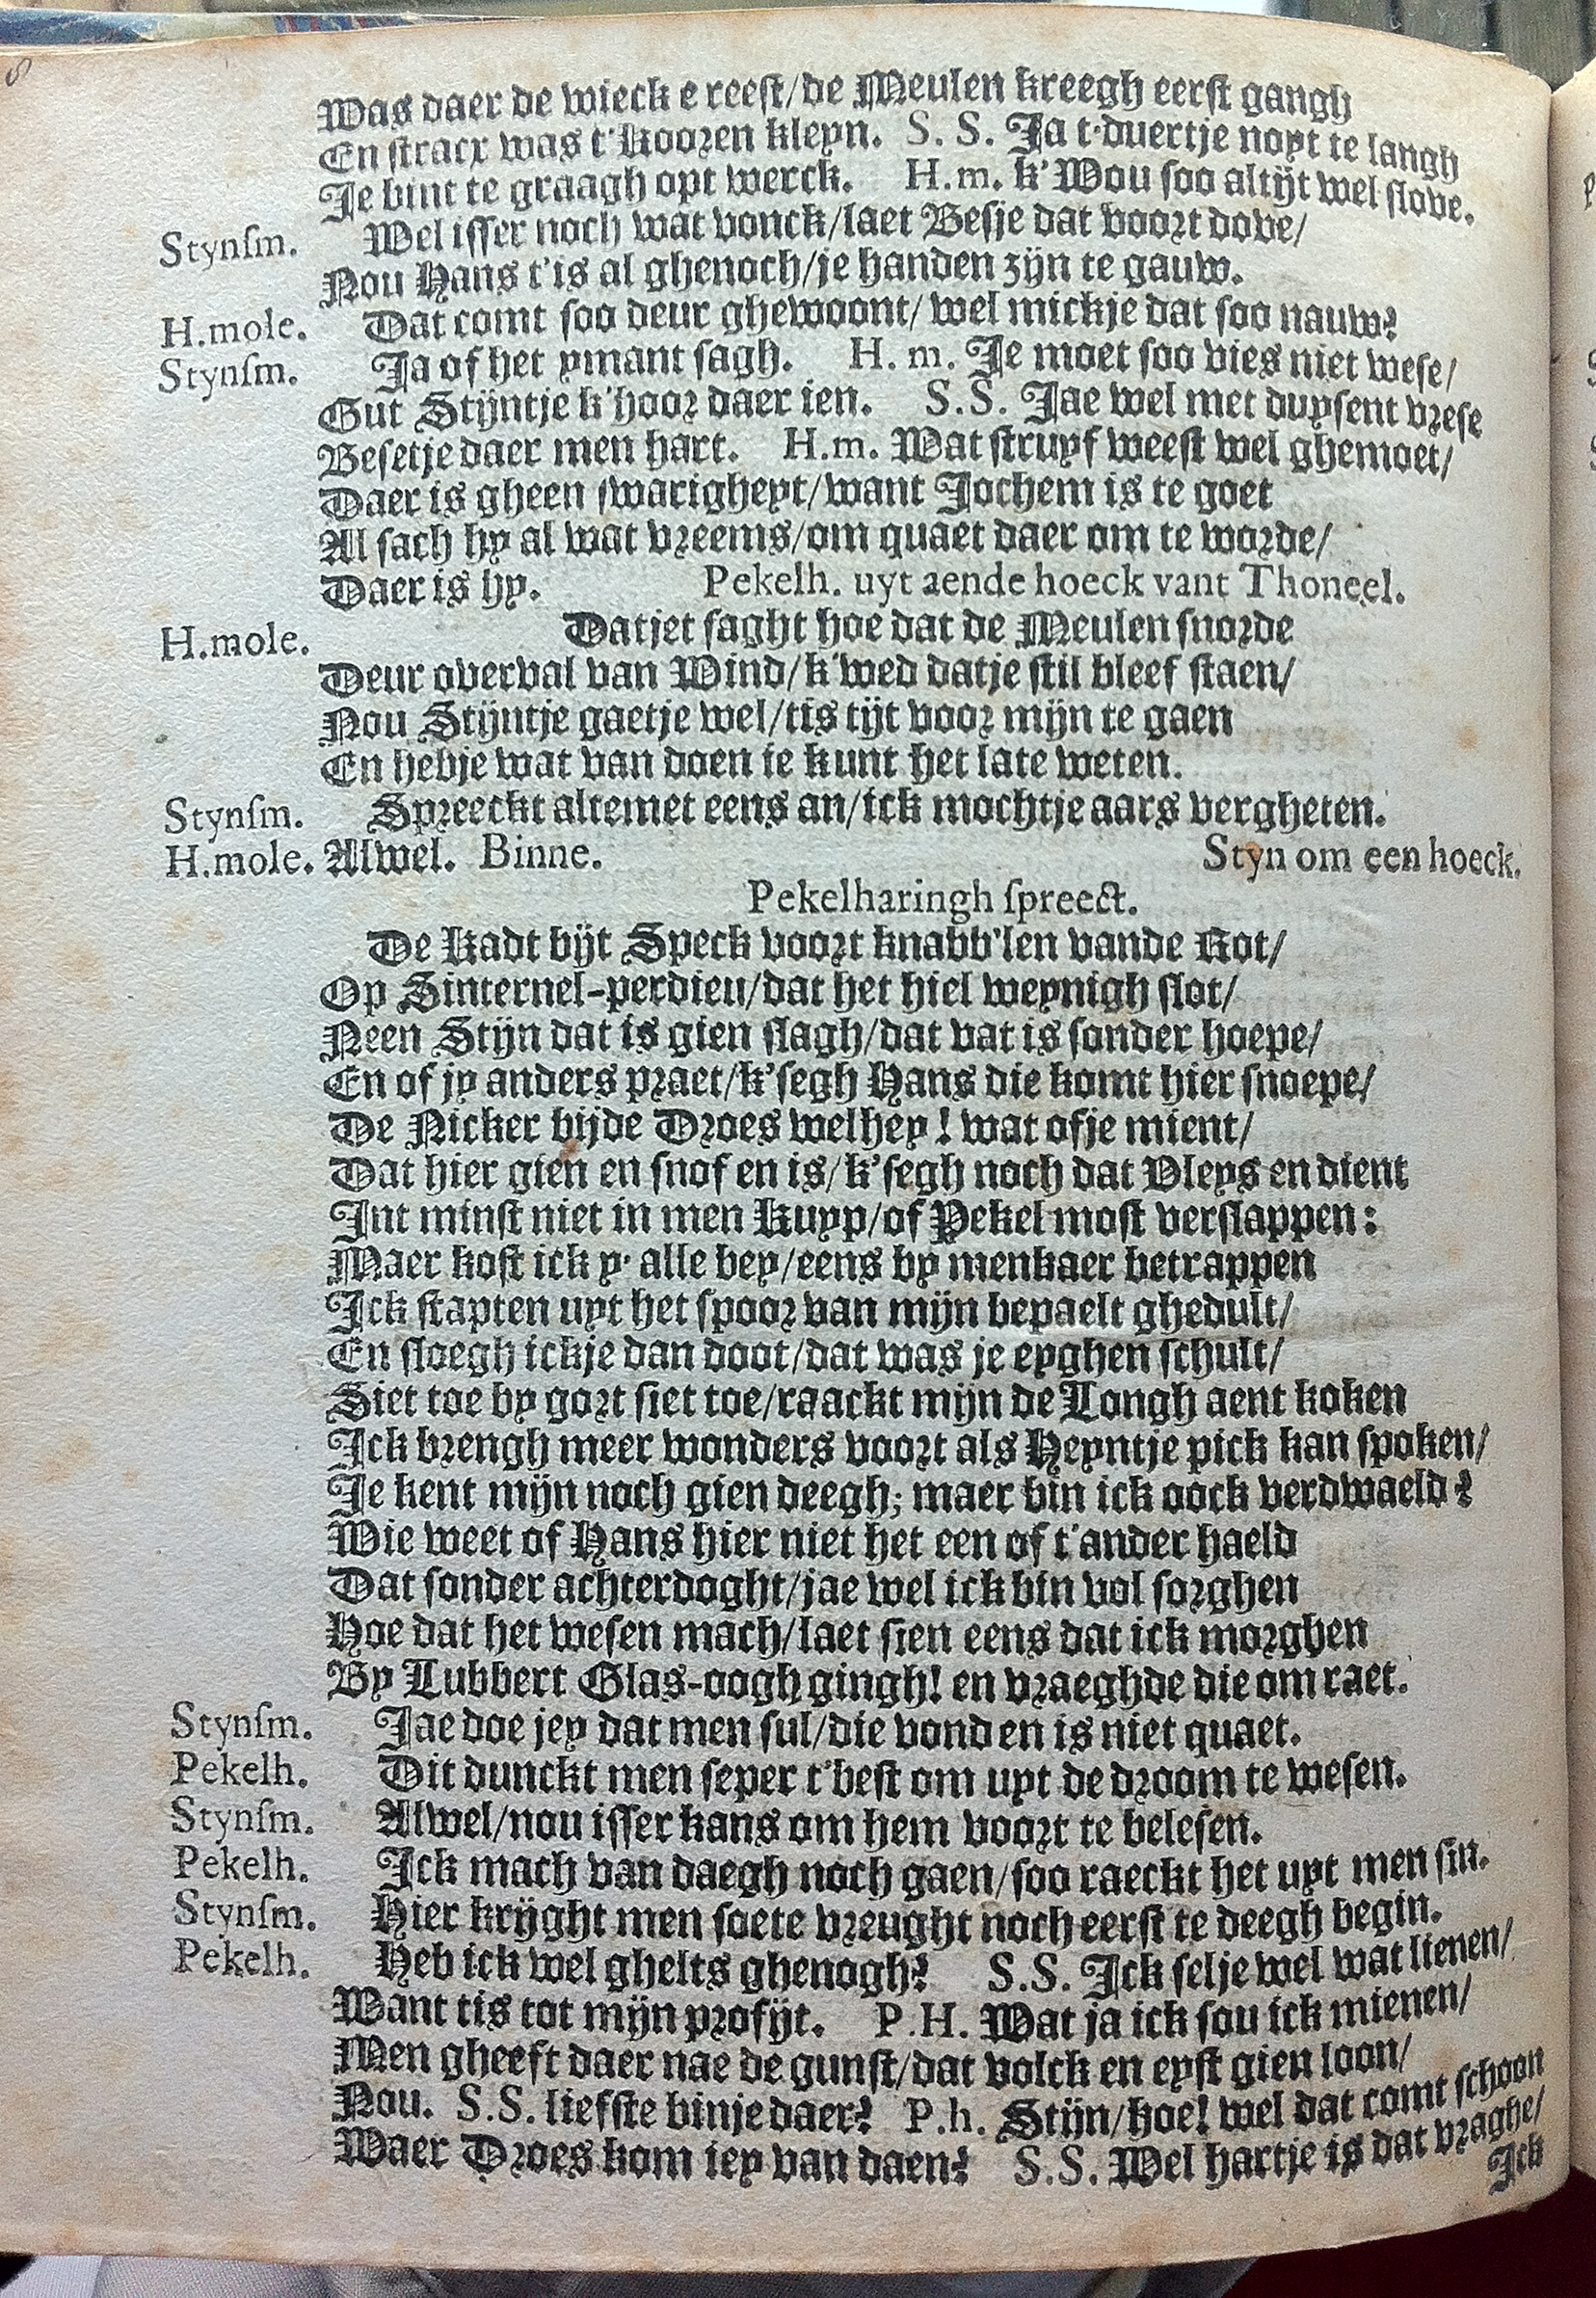 Was daer de wieck e reest/de Meulen kreegh eerst gangh
En stracx was t'Koozen kleyn. S. S. Ja t'duertje noyt te langh
Je bint te graagh opt werck. H.m. k'Wou soo altijt wel slove.
Stynsm. Wel isser noch wat vonck/laet Besje dat voort dove/
Nou Hans t'is al ghenoch/je handen zijn te gauw.
H.mole. Dat comt soo deur ghewoont/wel mickje dat soo nauw?
Stynsm. Ja of het ymant sagh. H. m. Je moet soo vies niet wese/
Gut Stijntje k'hoor daer ien. S.S. Jae wel met duysent vrese
Besetje daer men hart. H.m. Wat struyf weest wel ghemoet/
Daer is gheen swarigheyt/want Jochem is te goet
Al sach hy al wat vreems/om quaet daer om te worde/
Daer is hy. Pekelh. uyt aende hoeck vant Thoneel.
H.mole. Datjet saght hoe dat de Meulen snorde
Deur overval van Wind/k'wed datje stil bleef staen/
Nou Stijntje gaetje wel/tis tijt voor mijn te gaen
En hebje wat van doen je kunt het late weten.
Stynsm. Spreeckt altemet eens an/ick mochtje aars vergheten.
H.mole. Alwel. Binne. Styn om een hoeck.
Pekelharingh spreect.
De Kadt bijt Speck voort knabb'len vande Rot/
Op Sinternel-perdieu/dat het hiel weynigh slot/
Neen Stijn dat is gien slagh/dat vat is sonder hoepe/
En of jy anders praet/k'segh Hans die komt hier snoepe/
De Nicker bijde Droes welhey! wat ofje mient/
Dat hier gien en snof en is/k'segh noch dat Vleys en dient
Int minst niet in men Kuyp/of Pekel most verslappen:
Maer kost ick y' alle bey/eens by menkaer betrappen
Ick stapten uyt het spoor van mijn bepaelt ghedult/
En sloegh ickje dan doot/dat was je eyghen schult/
Siet toe by gort siet toe/raackt mijn de Longh aent koken
Ick brengh meer wonders voort als Heyntje pick kan spoken/
Je kent mijn noch gien deegh; maer bin ick oock verdwaeld?
Wie weet of Hans hier niet het een of t'ander haeld
Dat sonder achterdoght/jae wel ick bin vol sorghen
Hoe dat het wesen mach/laet sien eens dat ick morghen
By Lubbert Glas-oogh gingh! en vraeghde die om raet.
Stynsm. Jae doe jey dat men sul/die vond en is niet quaet.
Pekelh. Dit dunckt men seper t'best om uyt de droom te wesen.
Stynsm. Alwel/nou isser kans om hem voort te belesen.
Pekelh. Ick mach van daegh noch gaen/soo raeckt het uyt men sin.
Stynsm. Hier krijght men soete vreught noch eerst te deegh begin.
Pekelh. Heb ick wel ghelts ghenogh? S.S. Ick selje wel wat lienen/
Want tis tot mijn profijt. P.H. Wat ja ick sou ick mienen/
Men gheeft daer nae de gunst/dat volck en eyst gien loon/
Nou. S.S. liefste binje daer? P.h. Stijn/hoe! wel dat comt schoon
Waer Droes kom iey van daen? S.S. Wel hartje is dat vraghe/
Ick